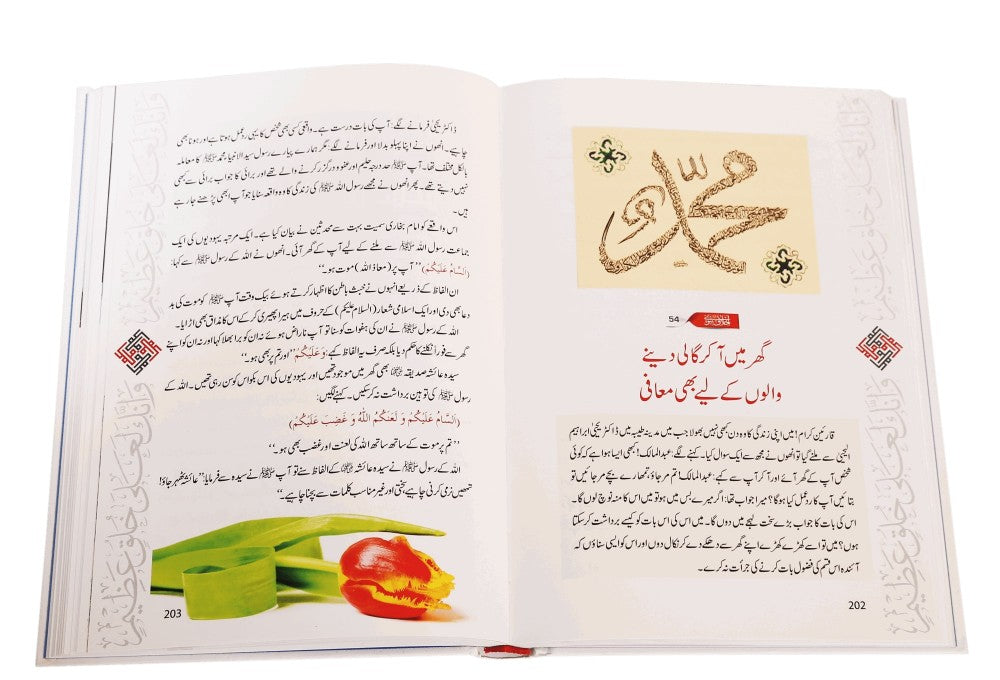 محمد
54
گھر میں آ کر گالی دینے
والوں کے لیے بھی معافی
قارئین کرام! میں اپنی زندگی کا وہ دن بھی نہیں بھولا جب میں مدینہ طیبہ میں ڈاکٹر یحییٰ ابراہیم
الیحییٰ سے ملنے گیا تو انھوں نے مجھ سے ایک سوال کیا۔ کہنے لگے: عبدالمالک! کبھی ایسا ہوا ہے کہ کوئی
شخص آپ کے گھر آئے اور آ کر آپ سے کہے: عبدالمالک! تم مر جاؤ، تمھارے بچے مر جائیں تو
بتائیں آپ کا ردعمل کیا ہوگا؟ میرا جواب تھا: اگر میرے بس میں ہو تو میں اس کا منہ نوچ لوں گا۔
اس کی بات کا جواب بڑے سخت لہجے میں دوں گا۔ میں اس کی اس بات کو کیسے برداشت کر سکتا
ہوں؟ میں تو اسے کھڑے کھڑے اپنے گھر سے دھکے دے کر نکال دوں اور اس کو ایسی سناؤں کہ
آئندہ اس قسم کی فضول بات کرنے کی جرأت نہ کرے۔
202
وَإِنَّكَ لَعَلَىٰ خُلُقٍ عَظِيمٍ
ڈاکٹر یحییٰ فرمانے لگے: آپ کی بات درست ہے۔ واقعی کسی بھی شخص کا یہی ردعمل ہوتا ہے اور ہونا بھی
چاہیے۔ انھوں نے اپنا پہلو بدلا اور فرمانے لگے: مگر ہمارے پیارے رسول سید الانبیاء محمد ﷺ کا معاملہ
بالکل مختلف تھا۔ آپ ﷺ حد درجہ حلیم اور عفو و درگزر کرنے والے تھے اور برائی کا جواب برائی سے کبھی
نہیں دیتے تھے۔ پھر انھوں نے مجھے رسول اللہ ﷺ کی زندگی کا وہ واقعہ سنایا جو آپ ابھی پڑھنے جا رہے
ہیں۔
اس واقعے کو امام بخاری سمیت بہت سے محدثین نے بیان کیا ہے۔ ایک مرتبہ یہودیوں کی ایک
جماعت رسول اللہ ﷺ سے ملنے کے لیے آپ کے گھر آئی۔ انھوں نے اللہ کے رسول ﷺ سے کہا:
(اَلسَّامُ عَلَيْكُمْ) ’’آپ پر (معاذ اللہ) موت ہو۔‘‘
ان الفاظ کے ذریعے انہوں نے خبث باطن کا اظہار کرتے ہوئے بیک وقت آپ ﷺ کو موت کی بد
دعا بھی دی اور ایک اسلامی شعار (السلام علیکم) کے حروف میں ہیرا پھیری کر کے اس کا مذاق بھی اڑایا۔
اللہ کے رسول ﷺ نے ان کی ہفوات کو سنا تو آپ ناراض ہوئے نہ ان کو برا بھلا کہا اور نہ ان کو اپنے
گھر سے فوراً نکلنے کا حکم دیا بلکہ صرف یہ الفاظ کہے: وَعَلَيْكُمْ ’’اور تم پر بھی ہو۔‘‘
سیدہ عائشہ صدیقہ ؓ بھی گھر میں موجود تھیں اور یہودیوں کی اس بکواس کو سن رہی تھیں۔ اللہ کے
رسول ﷺ کی توہین برداشت نہ کر سکیں۔ کہنے لگیں:
(اَلسَّامُ عَلَيْكُمْ وَ لَعَنَكُمُ اللّٰهُ وَ غَضِبَ عَلَيْكُمْ)
’’تم پر موت کے ساتھ ساتھ اللہ کی لعنت اور غضب بھی ہو۔‘‘
اللہ کے رسول ﷺ نے سیدہ عائشہ ؓ کے الفاظ سنے تو آپ ﷺ نے سیدہ سے فرمایا: ’’عائشہ ٹھہر جاؤ!
تمھیں نرمی کرنی چاہیے، سختی اور غیر مناسب کلمات سے بچنا چاہیے۔‘‘
203
وَإِنَّكَ لَعَلَىٰ خُلُقٍ عَظِيمٍ